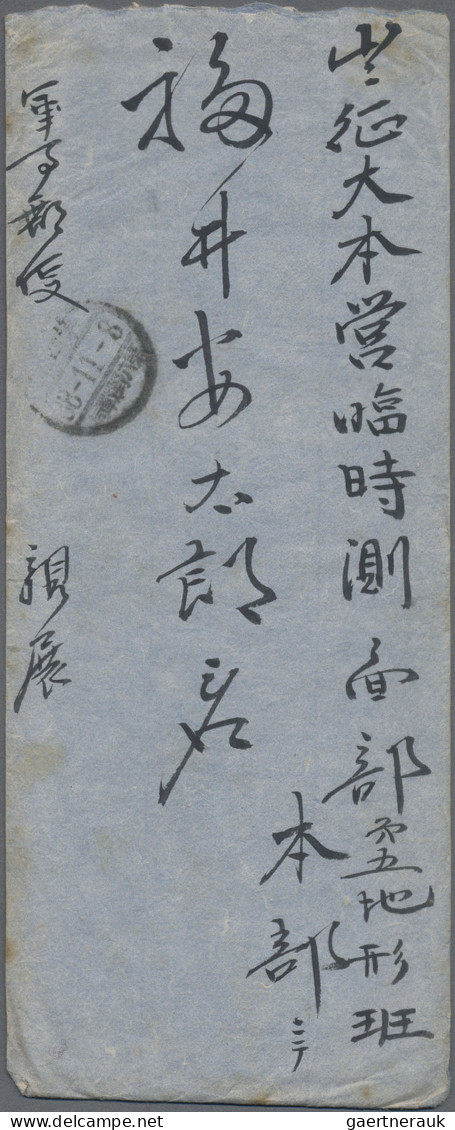 出征大本営臨時測圖部第五地形班
本部ニテ
福井安太郎君
軍事郵便
親展
38-11-8
www.delcampe.net
gaertnerauk